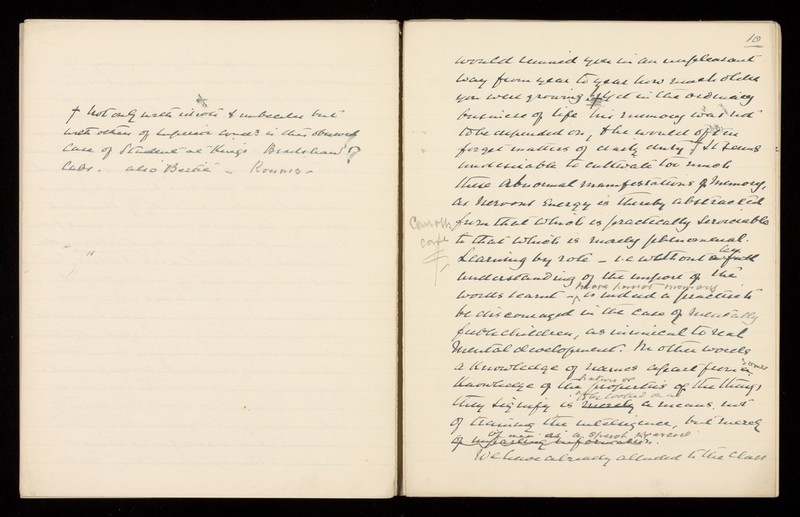 † Not only with idiots & imbeciles but
with others of superior is this observed
Case of Student at King's Bradshaw
Cabs. also Beetie - Ronnis -
10
would remind you in an unpleasant
way from year to year how much older
you were growing yet in the ordinary
business of life his memory was not
to be depended on, & he would often
forget matters of daily duty † It seems
undesirable to cultivate too much
these abnormal manifestations of Memory,
as Nervous Energy is thereby abstracted
from that which is practically serviceable
to that which is merely phenomenal.
Learning by rote - i.e without any
understanding of the import of the
mere parrot memory
words learnt - is indeed a practice to
be discouraged in the case of mentally
feeble children, as inimical to real
Mental development. In other words
a Knowledge of names apart from a
Knowledge of the properties of the things
nature or
to be looked on as
they signify is merely a means, not
of training the intelligence, but merely
of imparting information.
We have already alluded to the class